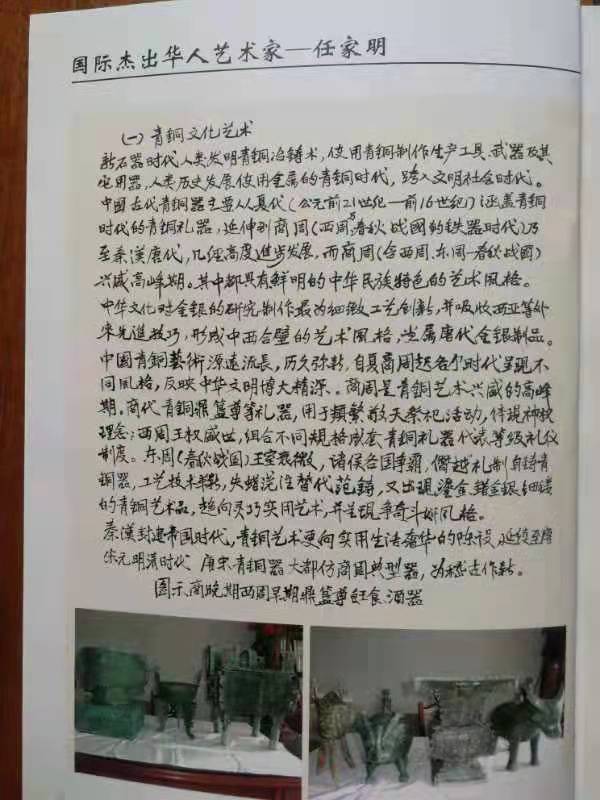 国际杰出华人艺术家—任家明
(一) 青铜文化艺术
新石器时代人类发明青铜冶铸术，使用青铜制作生产工具、武器及其
实用器，人类历史发展使用金属的青铜时代，跨入文明社会时代。
中国古代青铜器主要从夏代（公元前21世纪—前16世纪）涵盖青铜
时代的青铜礼器，延伸到商周（西周、春秋战國的铁器时代）乃
至秦漢唐代，几经高度进步发展，而商周（含西周、东周—春秋战國）
兴盛高峰期。其中都具有鲜明的中华民族特色的艺术风格。
中华文化对金银的研究制作最为细致工艺创新，并吸收西亚等外
来先進技巧，形成中西合壁的艺术风格，当属唐代金银制品。
中國青銅藝術源远流長，历久弥新，自夏商周起各个时代呈现不
同风格，反映中华文明博大精深。商周是青铜艺术兴盛的高峰
期。商代青铜鼎簋尊等礼器，用于頻繁的敬天祭祀活动，体现神权
理念；西周王权盛世，组合不同規格成套青铜礼器代表等级礼仪
制度。东周（春秋战国）王室衰微，诸侯各国争霸，僭越礼制自铸青
銅器，工艺技术革新，失蜡浇注替代范鋳，又出現鎏金錯金銀细镂
的青铜艺术品，趋向灵巧实用艺术，并呈現争奇斗妍风格。
秦漢封建帝国时代，青铜艺术更向实用生活奢华的陈设，延续至唐
宋元明清时代 唐宋青铜器大都仿商周典型器，为稽古作新。
图示商晚期西周早期鼎簋尊 食酒器